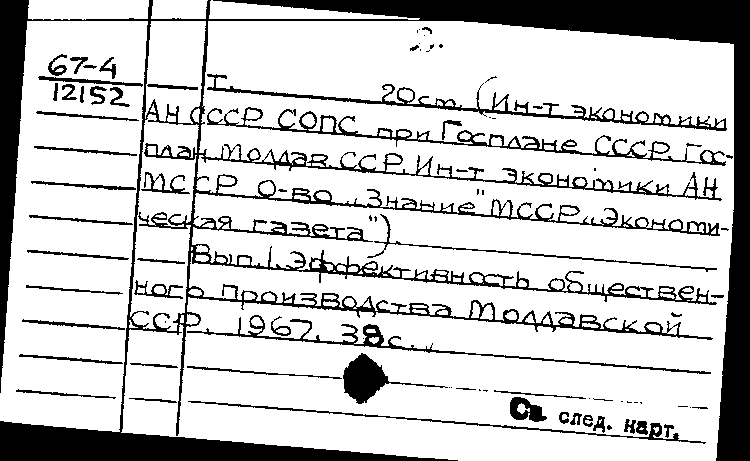 2.
67-4
12152
т. 20см. (Ин-т экономики
АН СССР СОПС при Госплане СССР. Гос-
план Молдав. ССР. Ин-т экономики АН
МССР О-во „Знание" МССР „Экономи-
ческая газета").
Вып. 1. Эффективность обществен-
ного производства Молдавской
ССР. 1967. 38с.
См след. карт.